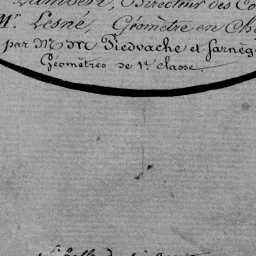 Directeur des Co
Mr. Lesne, Géomètre en Ch
par M M Piedvache et farnèg
Géomètres de 1e. classe.